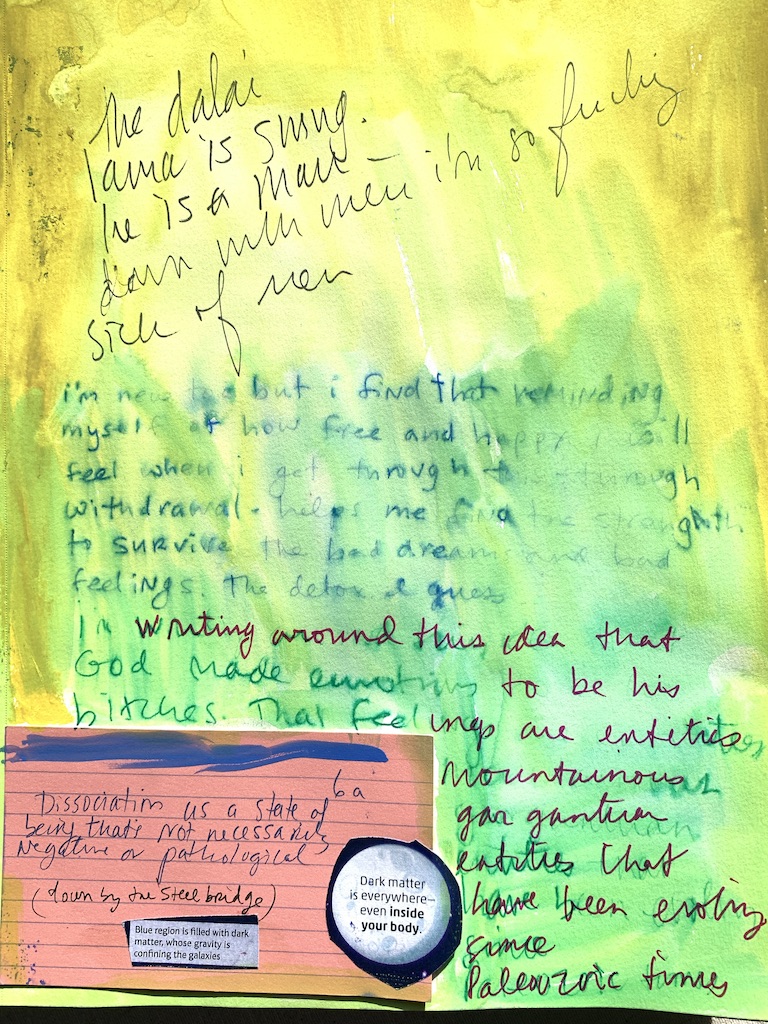 The dalai
lama is
he is a man –
down with men i'm so fucking
sick of men
i'm new but i find that reminding
myself of how free and happy i will
feel when i get through this – through
withdrawal - helps me find the
to survive the bad dreams and bad
feelings. The detox I guess
I'm writing around this idea that
God made emotions to be his
bitches. That feelings are entities
Mountainous
gargantuan
entities that
have been evolving
since
Paleozoic times
6a
Dissociation as a state of
being that's not necessarily
negative or pathological
(down by the steel bridge)
Blue region is filled with dark
matter, whose gravity is
confining the galaxies
Dark matter
is everywhere—
even inside
your body.